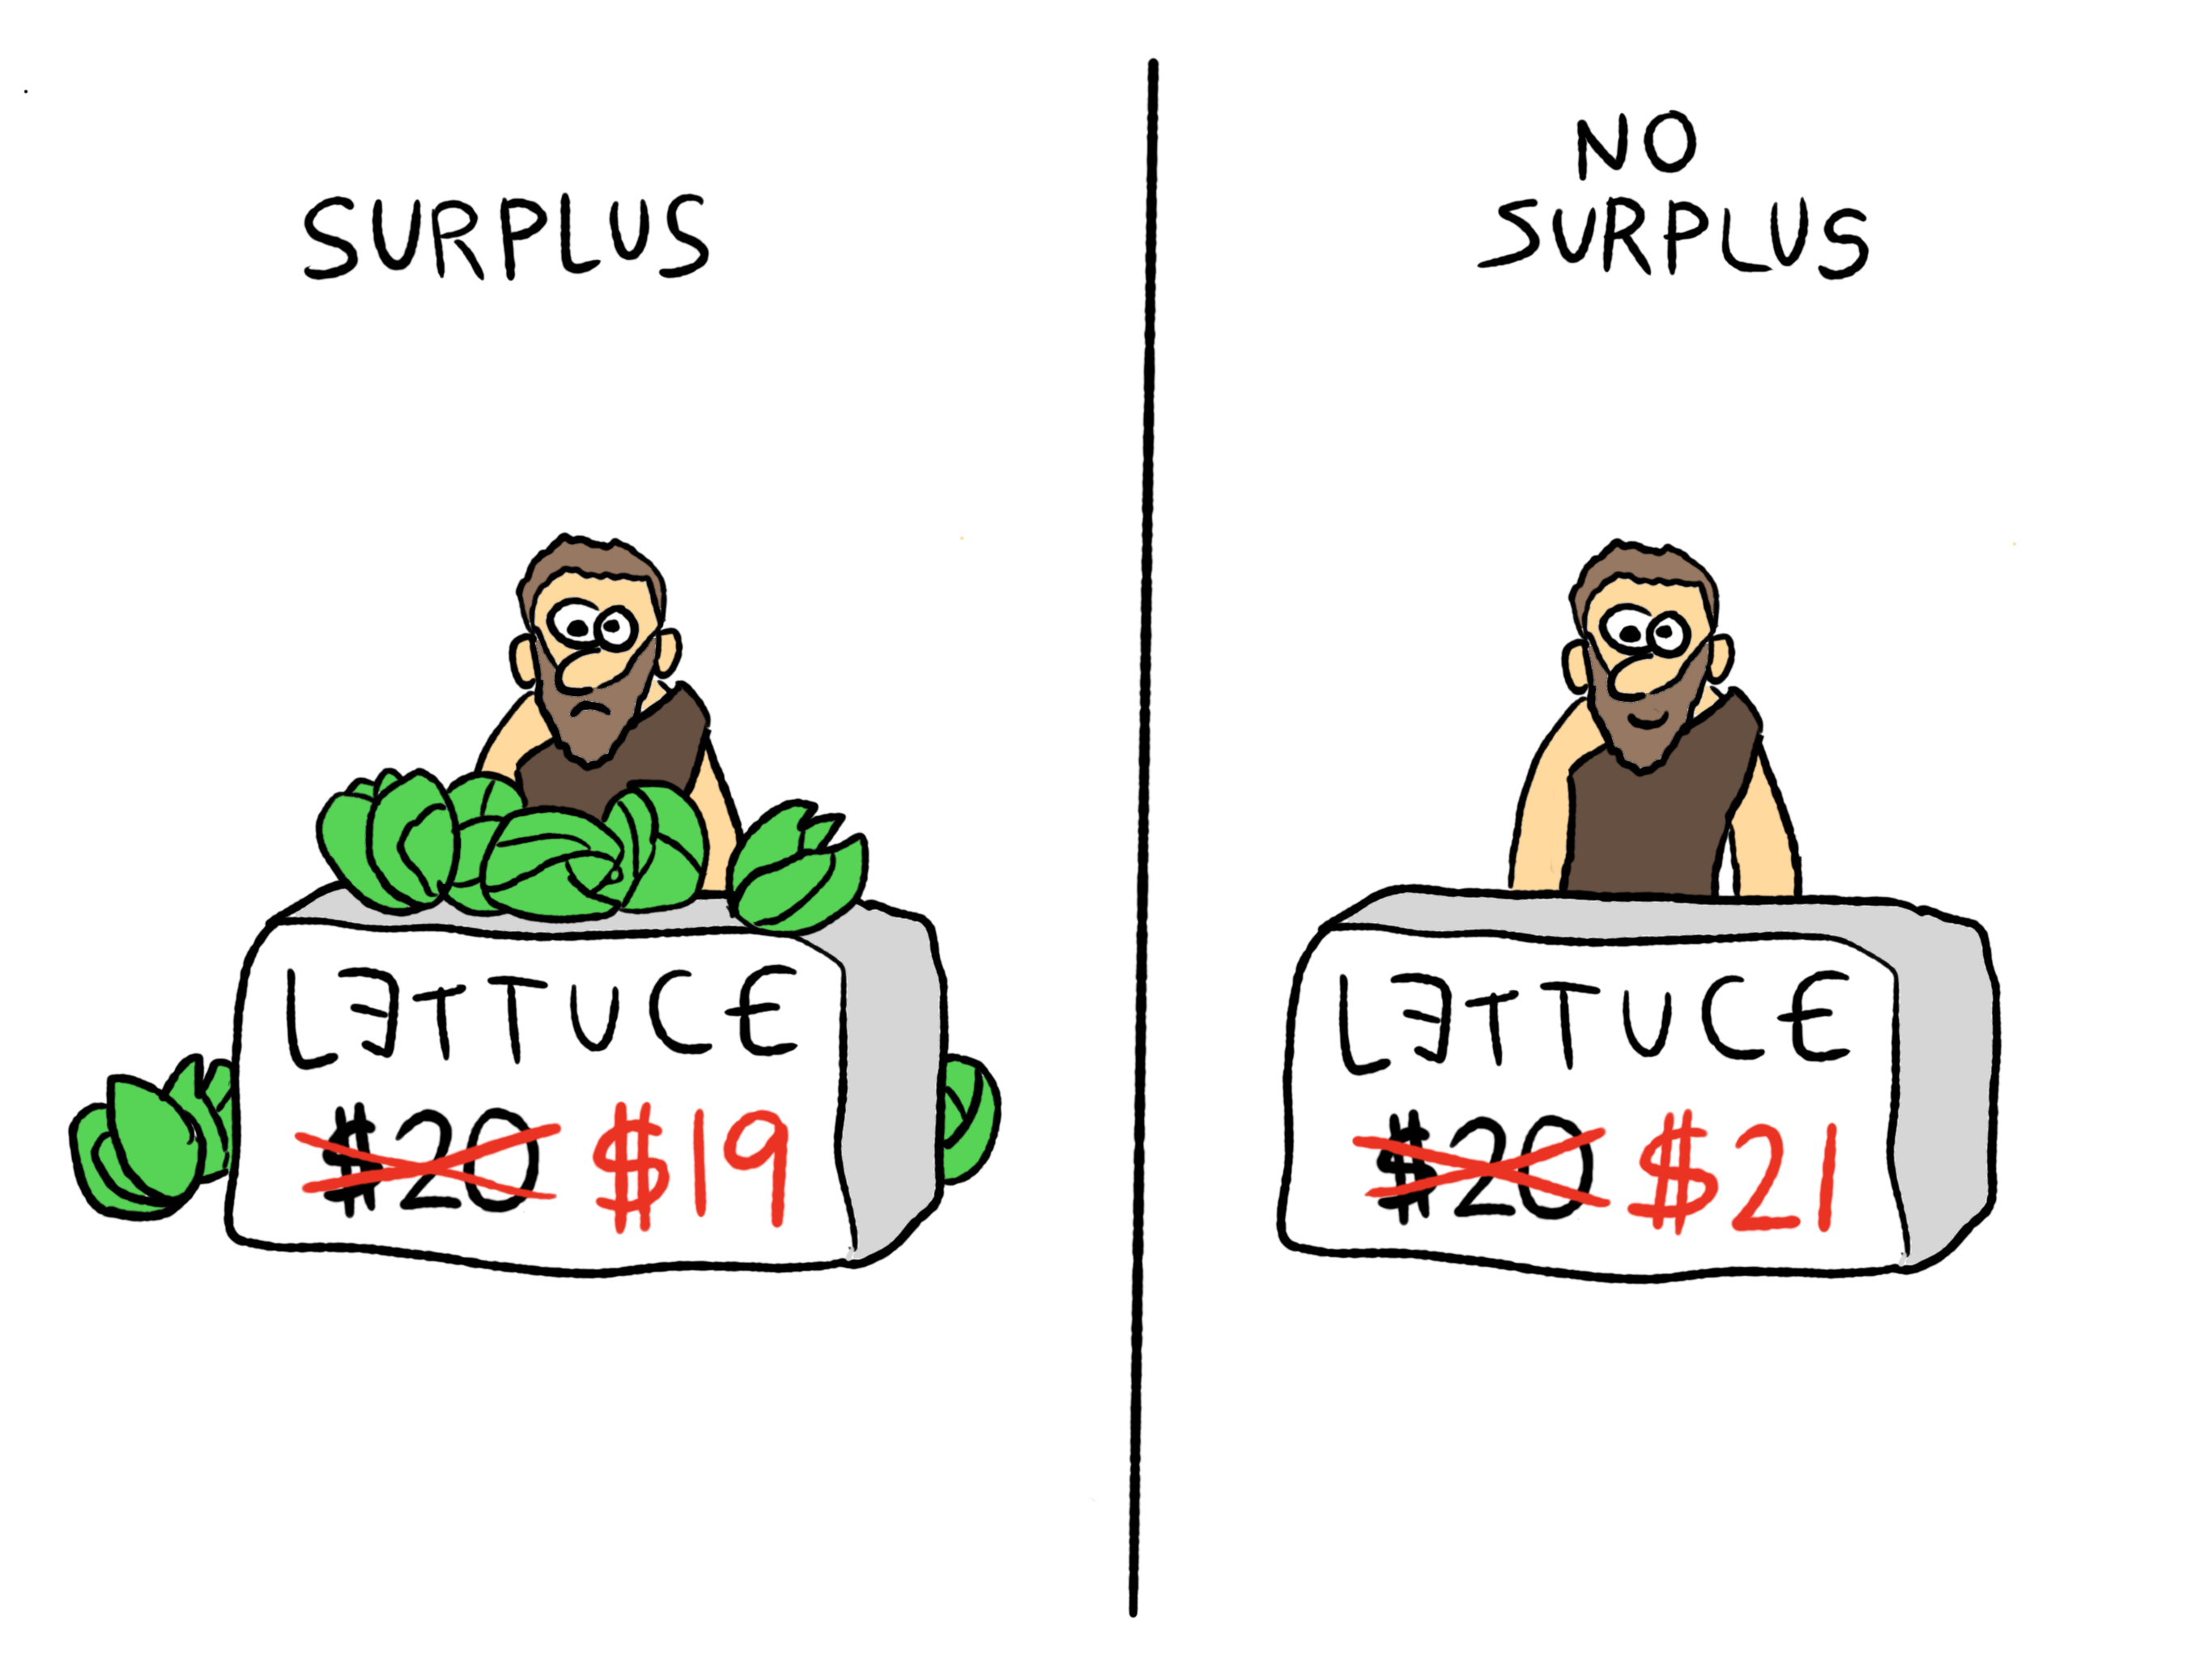 SURPLUS
LƎTTUCE
$20 $19
NO
SURPLUS
LƎTTUCE
$20 $21